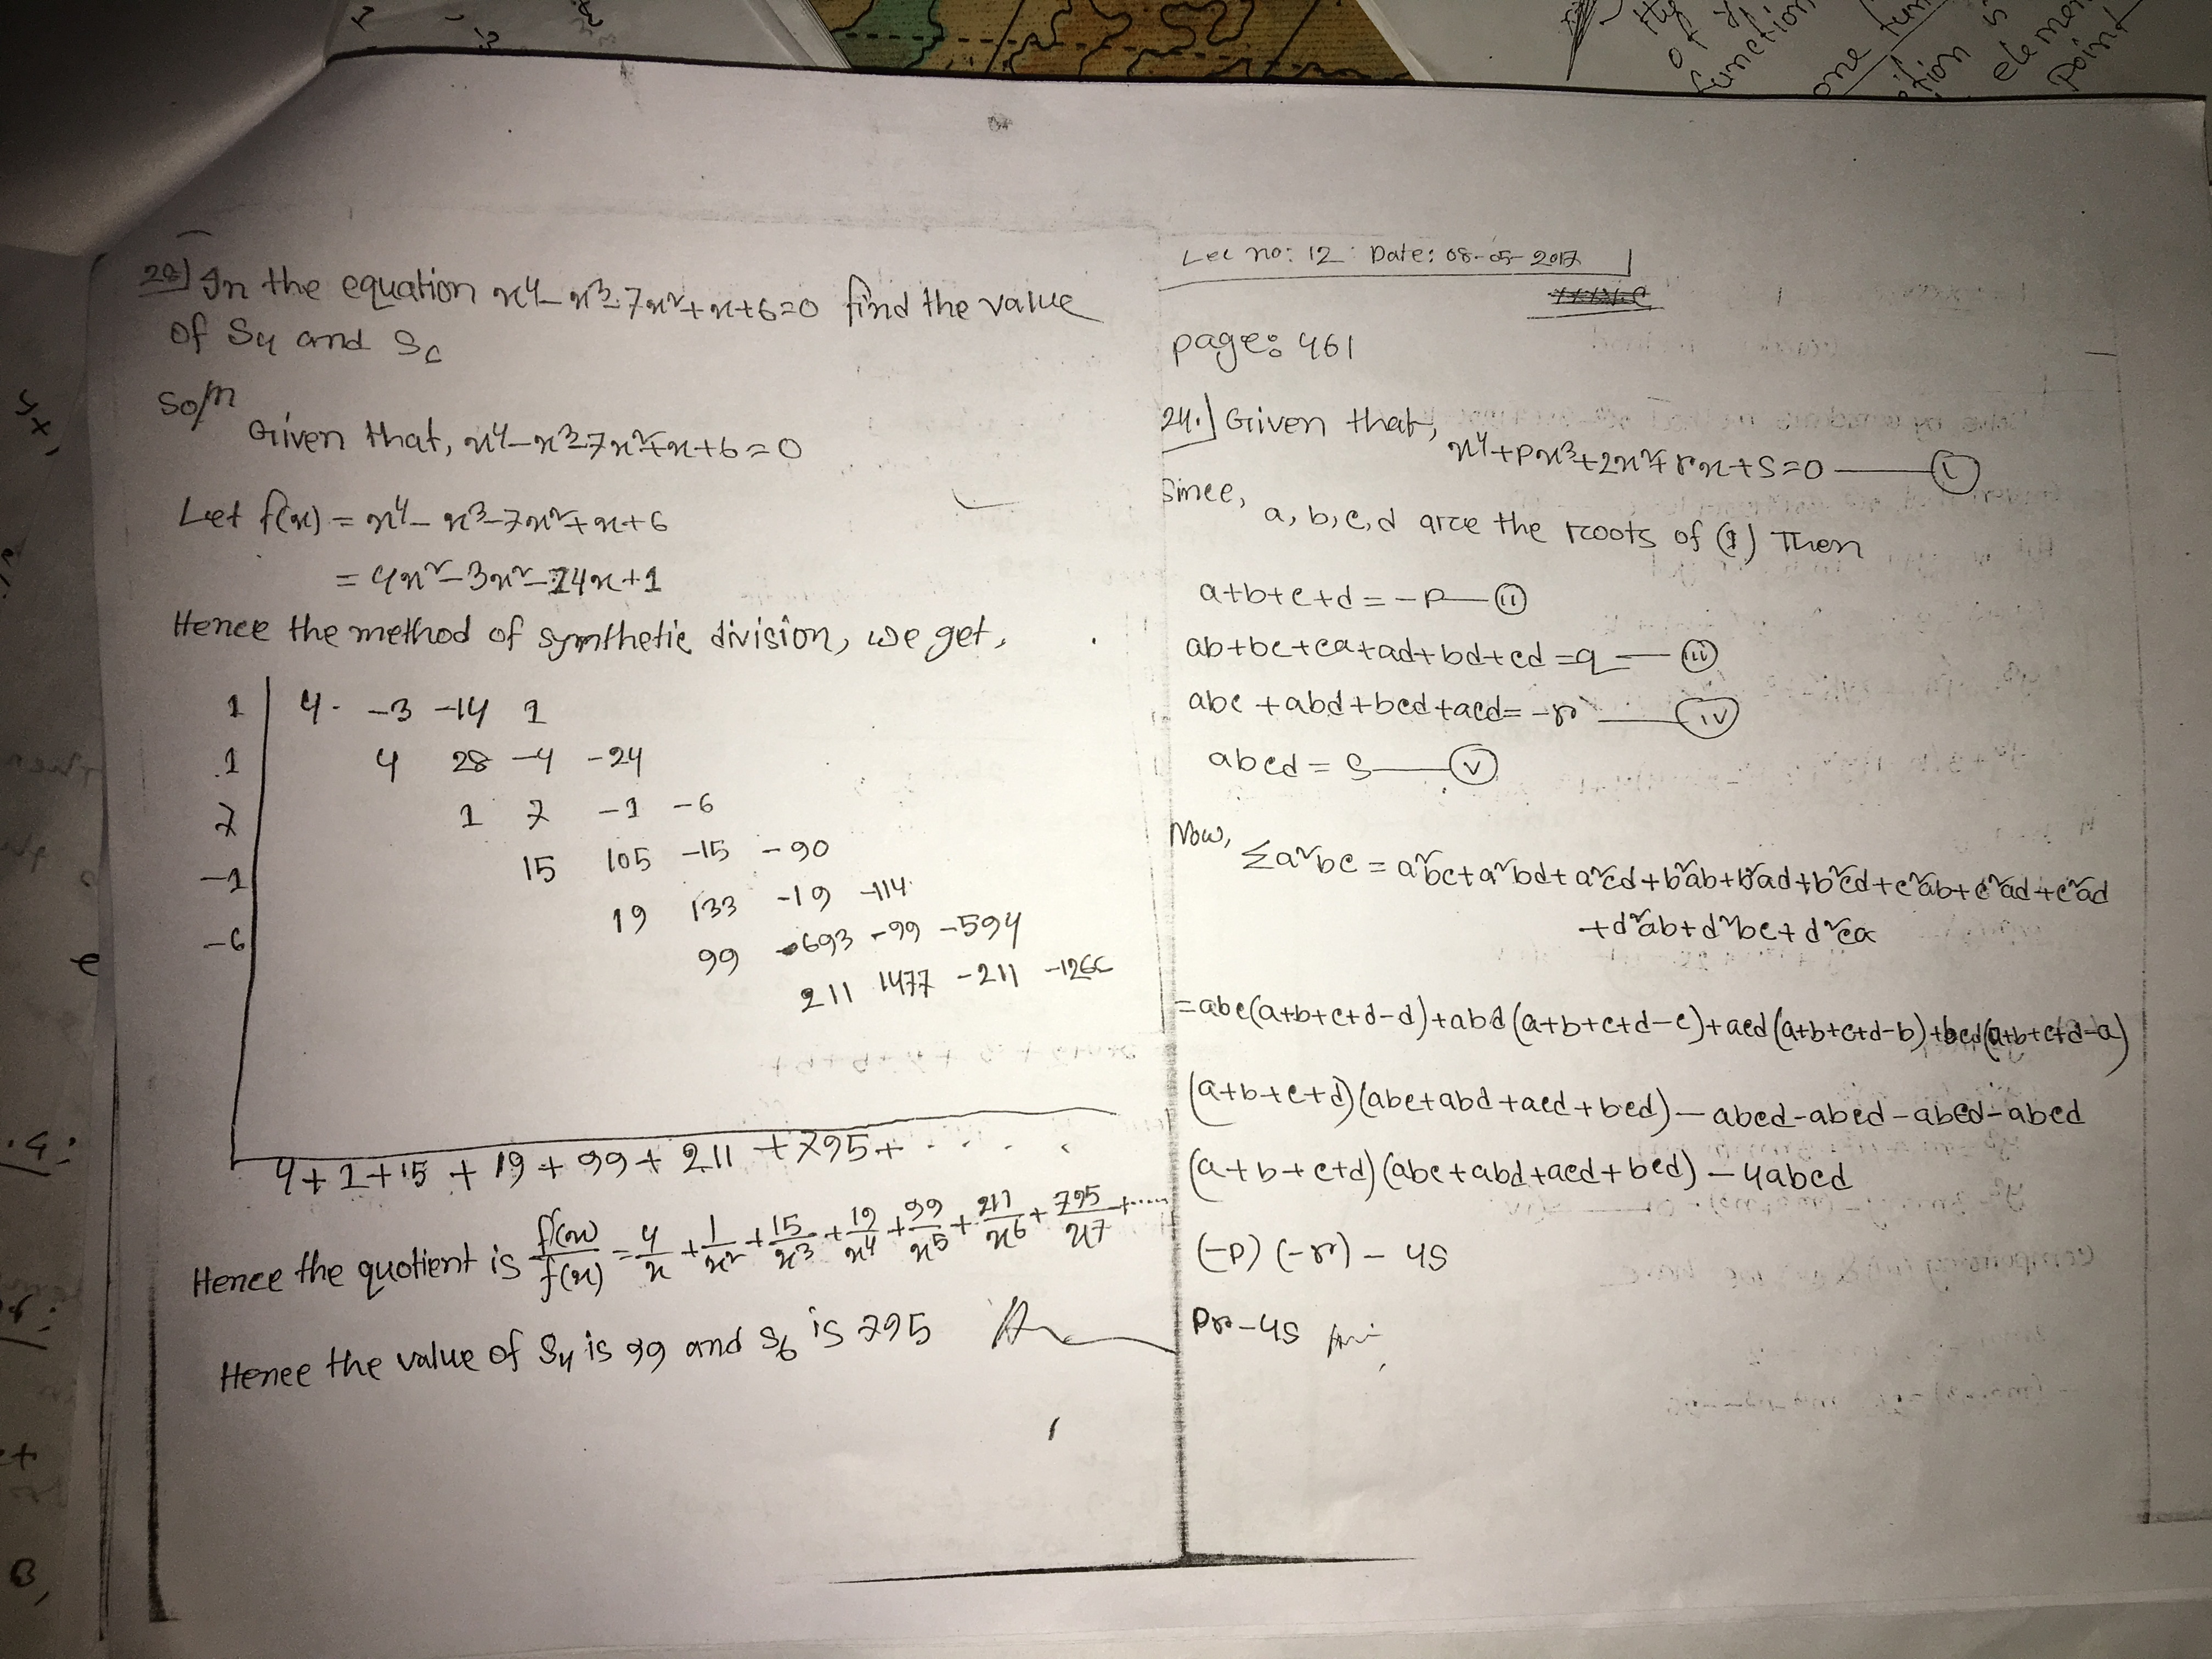 28) In the equation x⁴-x³-7x²+x+6=0 find the value
of S4 and S6
Soln
Given that, x⁴-x³-7x²+x+6=0
Let f(x) = x⁴-x³-7x²+x+6
= 4x²-3x²-14x+1
Hence the method of synthetic division, we get,
1 | 4 -3 -14 1
1 4 28 -4 -24
7 1 7 -1 -6
-1 15 105 -15 -90
-6 19 133 -19 -114
99 -693 -99 -594
211 1477 -211 -1266
4+1+15+19+99+211+795+ . . . .
Hence the quotient is f'(x)/f(x) = 4/x + 1/x² + 15/x³ + 19/x⁴ + 99/x⁵ + 211/x⁶ + 795/x⁷ + .....
Hence the value of S4 is 99 and S6 is 795
Lec no: 12 Date: 08-05-2017
page: 461
24.) Given that, x⁴+px³+2x²+rx+s=0 —— (i)
Since, a, b, c, d arce the rcoots of (1) Then
a+b+c+d=-p — (ii)
ab+bc+ca+ad+bd+cd=q — (iii)
abc+abd+bcd+acd=-r — (iv)
abcd = s — (v)
Now, Σa²bc = a²bc+a²bd+a²cd+b²ab+b²ad+b²cd+c²ab+c²ad+c²ad
+d²ab+d²bc+d²ca
=abc(a+b+c+d-d)+abd(a+b+c+d-c)+acd(a+b+c+d-b)+bcd(a+b+c+d-a)
(a+b+c+d)(abc+abd+acd+bcd)-abcd-abcd-abcd-abcd
(a+b+c+d)(abc+abd+acd+bcd)-4abcd
(-p)(-r)-4s
pr-4s
of
function
one
element
point